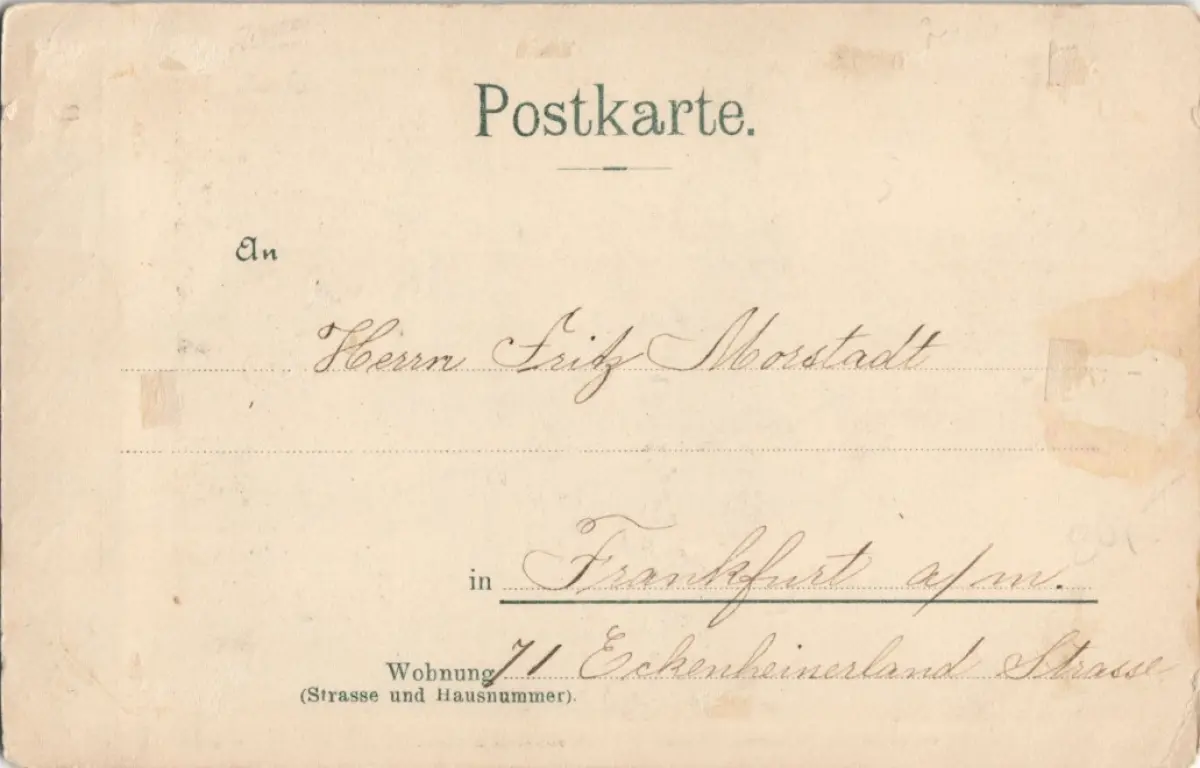 Postkarte.
An
Herrn Fritz Morstadt
in Frankfurt a/m.
Wohnung 71 Eckenheinerland Strasse
(Strasse und Hausnummer).